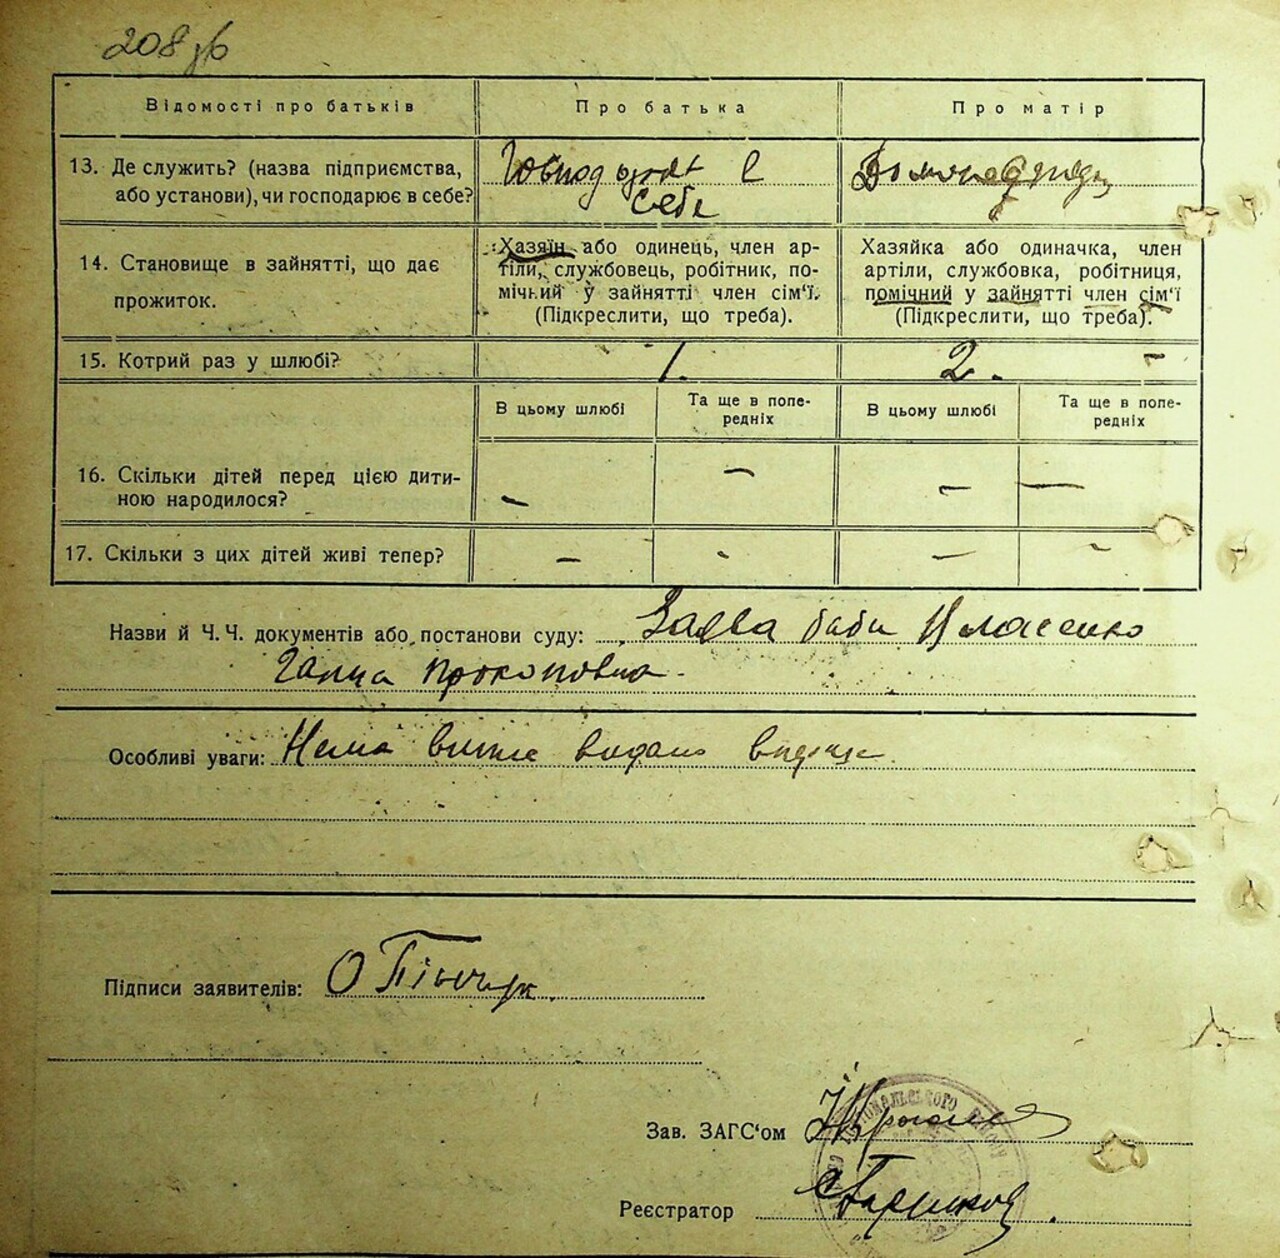 208 зв
Відомості про батьків
Про батька
Про матір
13. Де служить? (назва підприємства,
або установи), чи господарює в себе?
Господ
себе
14. Становище в зайнятті, що дає
прожиток.
Хазяїн або одинець, член ар-
тіли, службовець, робітник, по-
мічний у зайнятті член сім'ї.
(Підкреслити, що треба).
Хазяйка або одиначка, член
артіли, службовка, робітниця,
помічний у зайнятті член сім'ї
(Підкреслити, що треба).
15. Котрий раз у шлюбі?
1.
2. –
В цьому шлюбі
Та ще в попе-
редніх
В цьому шлюбі
Та ще в попе-
редніх
16. Скільки дітей перед цією дити-
ною народилося?
– – – –
17. Скільки з цих дітей живі тепер?
– – – –
Назви й Ч. Ч. документів або постанови суду: Заява баби Власенко
Ганна Прокоповна.
Особливі уваги: Нема видано
Підписи заявителів: О
Зав. ЗАГС'ом
Реєстратор